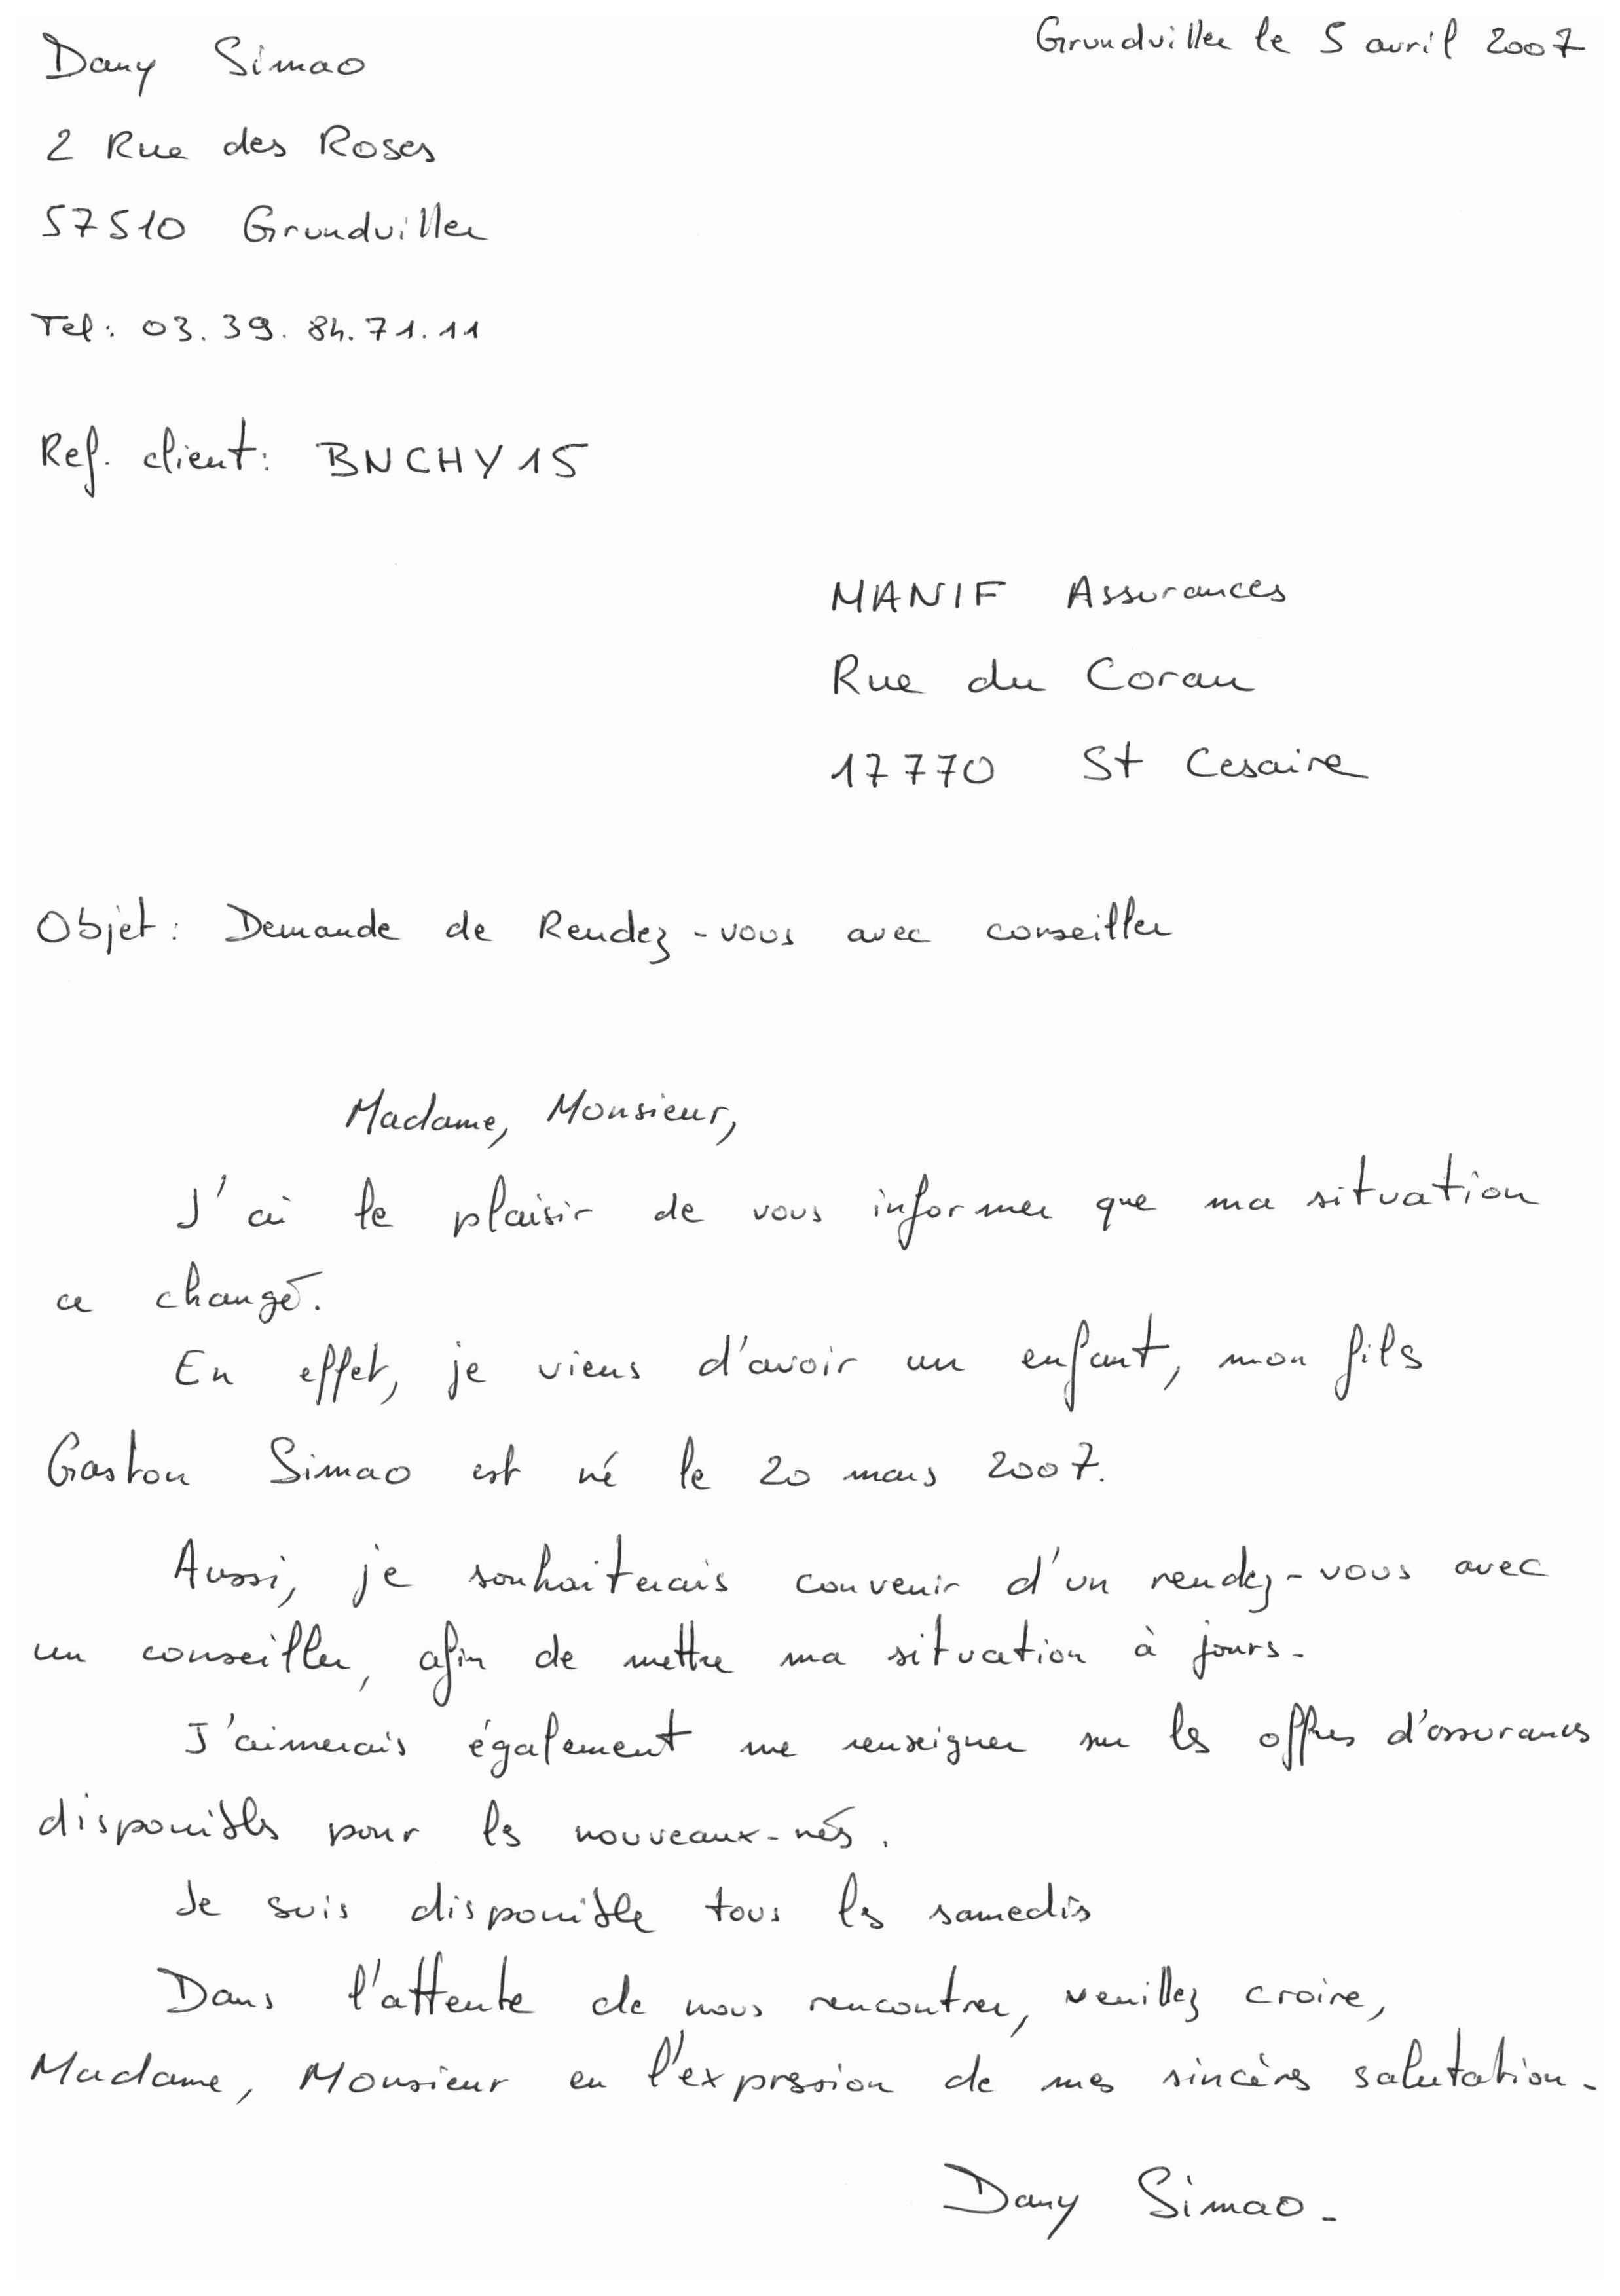 Dany Simao
Grundviller le 5 avril 2007
2 Rue des Roses
57510 Grundviller
Tel : 03.39.84.71.11
Ref. client : BNCHY15
MANIF Assurances
Rue du Coran
17770 St Cesaire
Objet : Demande de Rendez-vous avec conseiller
Madame, Monsieur,
J'ai le plaisir de vous informer que ma situation
a changé.
En effet, je viens d'avoir un enfant, mon fils
Gaston Simao est né le 20 mars 2007.
Aussi, je souhaiterais convenir d'un rendez-vous avec
un conseiller, afin de mettre ma situation à jours.
J'aimerais également me renseigner sur les offres d'assurances
disponibles pour les nouveaux-nés.
Je suis disponible tous les samedis
Dans l'attente de nous rencontrer, veuillez croire,
Madame, Monsieur en l'expression de mes sincères salutation.
Dany Simao.